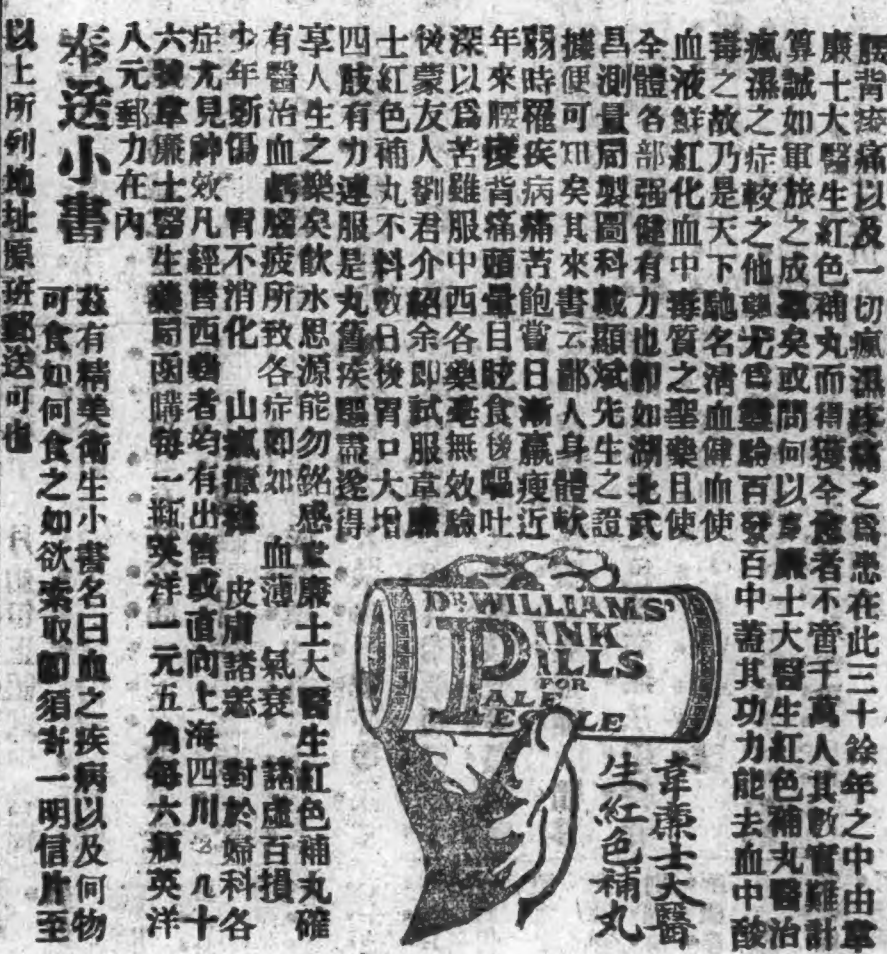 腰背痠痛以及一切瘋濕疼痛之爲患在此三十餘年之中由韋
廉士大醫生紅色補丸而得獲全愈者不啻千萬人其數實難計
算誠如軍旅之成軍矣或問何以韋廉士大醫生紅色補丸醫治
瘋濕之症較之他藥尤爲靈驗百發百中蓋其功力能去血中酸
毒之故乃是天下馳名清血健血使
血液鮮紅化血中毒質之聖藥且使
全體各部强健有力也卽如湖北武
昌測量局製圖科戴顯斌先生之證
據便可知矣其來書云鄙人身體軟
弱時罹疾病痛苦飽嘗日漸羸瘦近
年來腰痠背痛頭暈目眩食後嘔吐
深以爲苦雖服中西各藥毫無效驗
後蒙友人劉君介紹余卽試服韋廉
士紅色補丸不料數日後胃口大增
四肢有力連服是丸舊疾驅盡遂得
享人生之樂矣飲水思源能勿銘感韋廉士大醫生紅色補丸確
有醫治血虧腦疲所致各症卽如 血薄 氣衰 諸虛百損
少年斲傷 胃不消化 山嵐瘴瘧 皮膚諸恙 對於婦科各
症尤見神效凡經售西藥者均有出售或直向上海四川路八十
六號韋廉士醫生藥局函購每一瓶英洋一元五角每六瓶英洋
八元郵力在內
奉送小書
茲有精美衛生小書名曰血之疾病以及何物
可食如何食之如欲索取卽須寄一明信片至
以上所列地址原班郵送可也
DR WILLIAMS'
PINK
PILLS
FOR
PALE
PEOPLE
韋廉士大醫
生紅色補丸